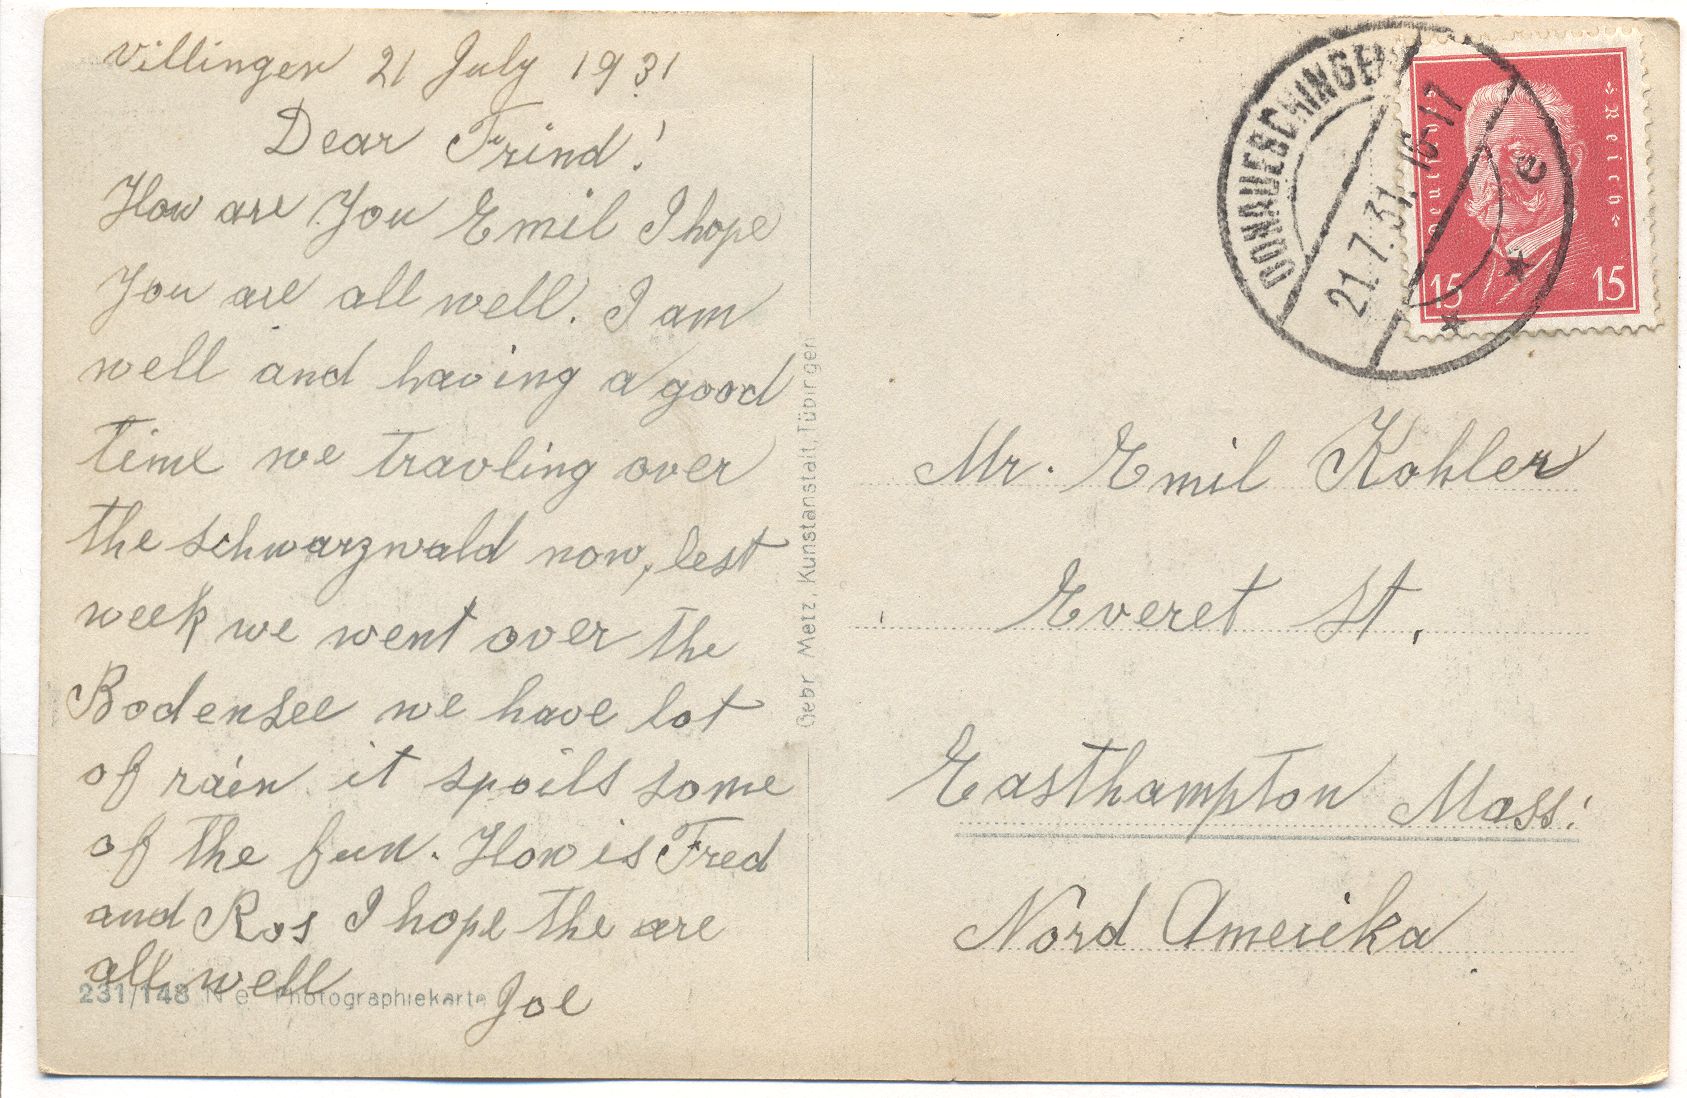 Villingen 21 July 1931
Dear Frind!
How are You Emil I hope
You are all well. I am
well and having a good
time we travling over
the schwarzwald now, lest
week we went over the
Bodensee we have lot
of rain it spoils some
of the fun. How is Fred
and Ros I hope the are
all well
Joe
231/148 N e Photographiekarte
Gebr Metz, Kunstanstalt, Tübingen
DONAUESCHINGEN
21.7.31. 16-17
e
Deutsches Reich
15 15
Mr. Emil Kohler
Everet St.
Easthampton Mass:
Nord Amerika